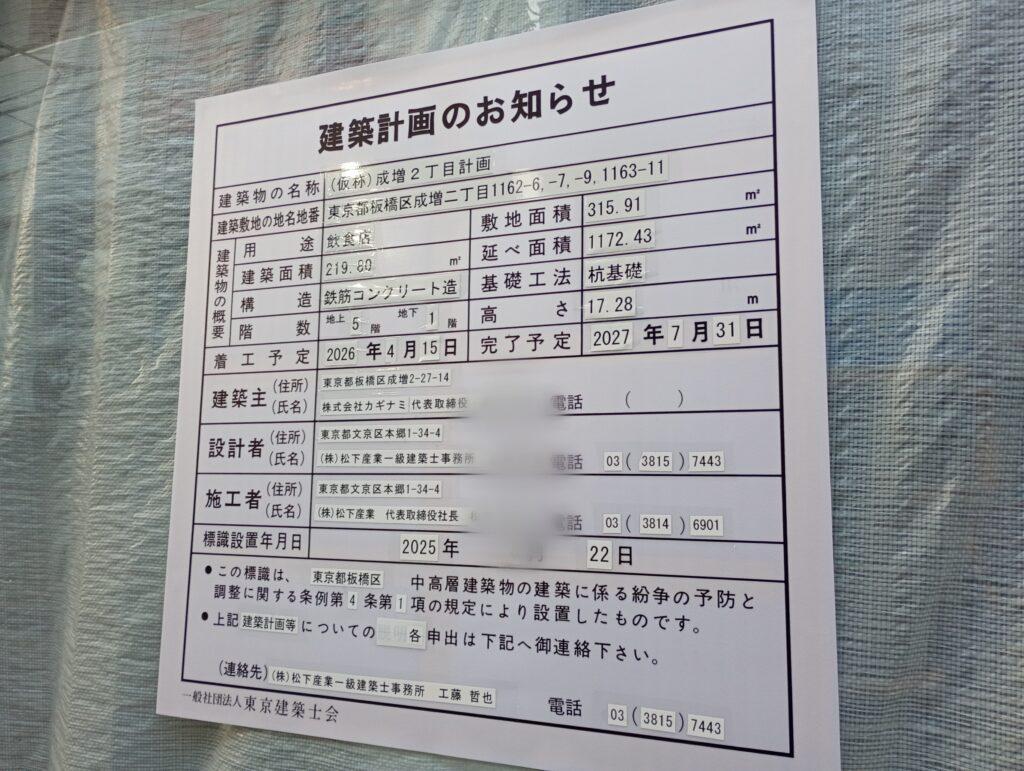 建築計画のお知らせ
建築物の名称 (仮称)成増2丁目計画
建築敷地の地名地番 東京都板橋区成増二丁目1162-6,-7,-9,1163-11
建築物の概要
用途 飲食店 敷地面積 315.91 ㎡
建築面積 219.80 ㎡ 延べ面積 1172.43 ㎡
構造 鉄筋コンクリート造 基礎工法 杭基礎
階数 地上 5 階 地下 1 階 高さ 17.28 m
着工予定 2026 年 4 月 15 日 完了予定 2027 年 7 月 31 日
建築主 (住所) 東京都板橋区成増2-27-14
(氏名) 株式会社カギナミ 代表取締役 電話 ( )
設計者 (住所) 東京都文京区本郷1-34-4
(氏名) (株)松下産業一級建築士事務所 電話 03 ( 3815 ) 7443
施工者 (住所) 東京都文京区本郷1-34-4
(氏名) (株)松下産業 代表取締役社長 電話 03 ( 3814 ) 6901
標識設置年月日 2025 年 月 22 日
●この標識は、 東京都板橋区 中高層建築物の建築に係る紛争の予防と
調整に関する条例第 4 条第 1 項の規定により設置したものです。
●上記 建築計画等 についての 各 申出は下記へ御連絡下さい。
(連絡先) (株)松下産業一級建築士事務所 工藤 哲也 電話 03 ( 3815 ) 7443
一般社団法人 東京建築士会